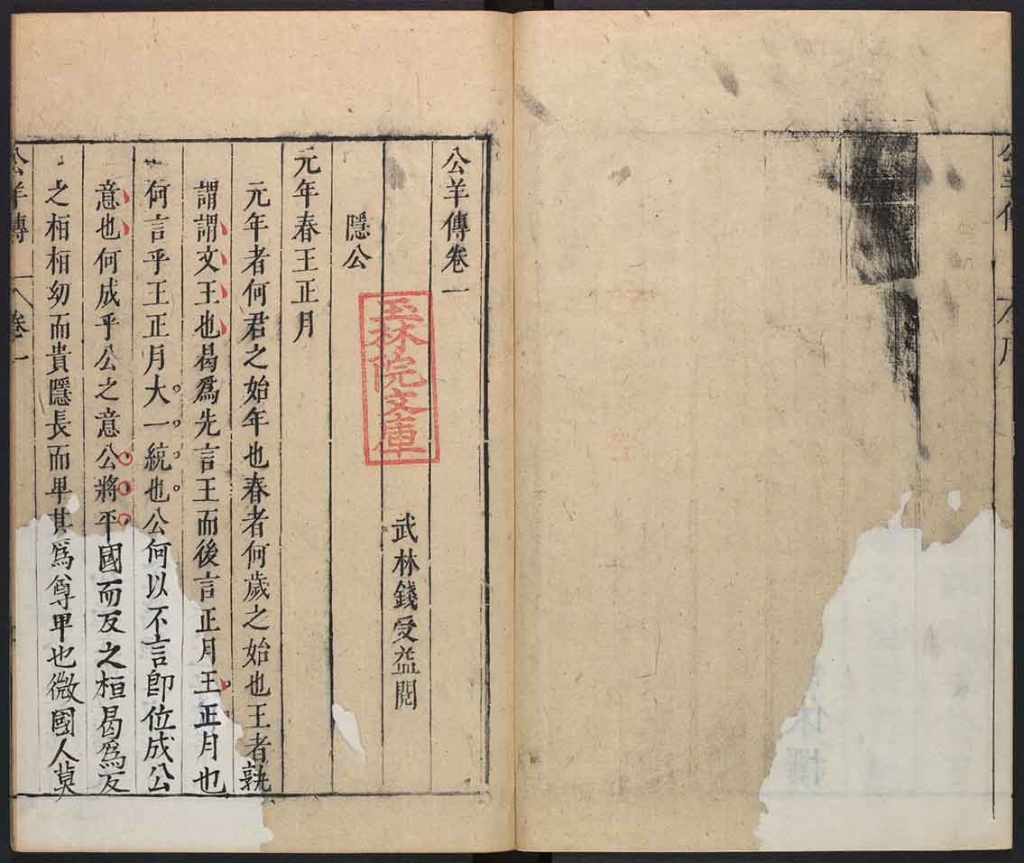 公羊傳
公羊傳卷一
武林錢受益閱
玉林院文庫
隱公
元年春王正月
元年者何君之始年也春者何歲之始也王者孰
謂謂文王也曷爲先言王而後言正月王正月也
何言乎王正月大一統也公何以不言即位成公
意也何成乎公之意公將平國而反之桓曷爲反
之桓桓幼而貴隱長而卑其爲尊卑也微國人莫
公羊傳 卷一